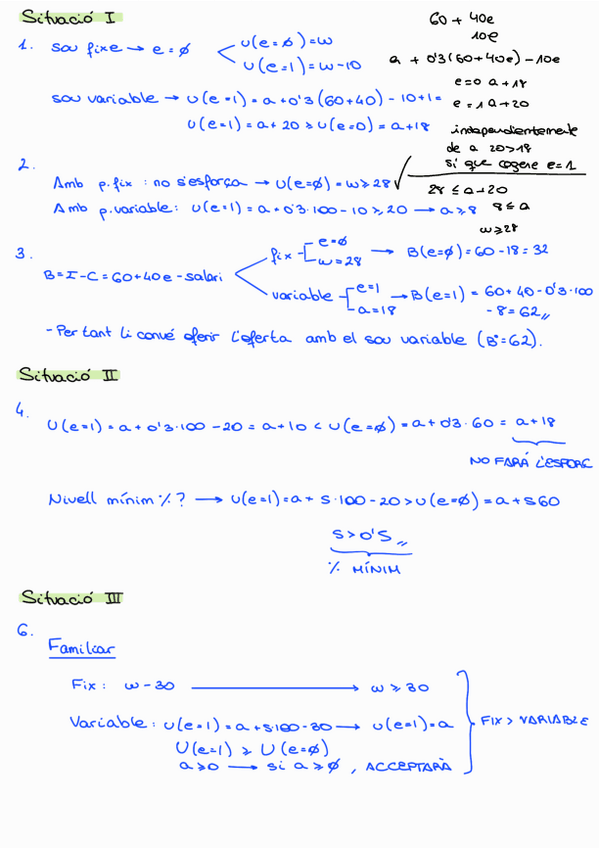 Situació I
1. sou fixe → e=ø
U(e=ø)=w
U(e=1)=w-10
sou variable → U(e=1)=a+0'3(60+40)-10+1=
U(e=1)=a+20 ≥ U(e=0)=a+18
60 + 40e
10e
a + 0'3(60+40e)-10e
e=0 a+18
e=1 a+20
independientemente
de a 20>18
si que cogere e=1
2.
Amb p.fix : no s'esforça → U(e=ø)=w≥28 √
Amb p.variable: U(e=1)=a+0'3·100-10≥20 → a≥8
28 ≤ a+20
8 ≤ a
w≥28
3.
B=I-C=60+40e-salari
fix e=ø
w=28 → B(e=ø)=60-18=32
variable e=1
a=18 → B(e=1)=60+40-0'3·100
-8=62,,
-Per tant li convé oferir l'oferta amb el sou variable (B=62).
Situació II
4.
U(e=1)=a+0'3·100-20=a+10<U(e=ø)=a+0'3·60=a+18
NO FARÀ L'ESFORÇ
Nivell mínim %? → U(e=1)=a+s·100-20>U(e=ø)=a+s60
s>0's,,
% MÍNIM
Situació III
6.
Familiar
Fix: w-30 → w≥30
Variable: U(e=1)=a+s·100-30 → U(e=1)=a
U(e=1) ≥ U(e=ø)
a≥0 → si a≥ø, ACCEPTARÀ
FIX > VARIABLE